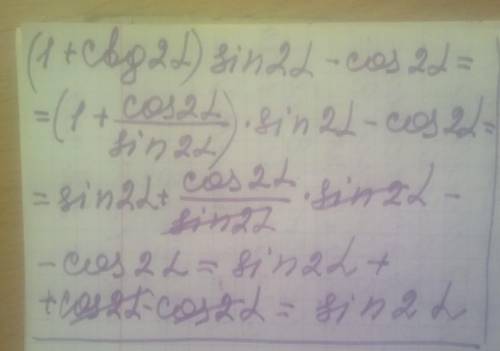 (1 + ctg2α) sin2α - cos2α =
= (1 + cos2α/sin2α) · sin2α - cos2α =
= sin2α + cos2α/sin2α · sin2α -
- cos2α = sin2α +
+ cos2α - cos2α = sin2α